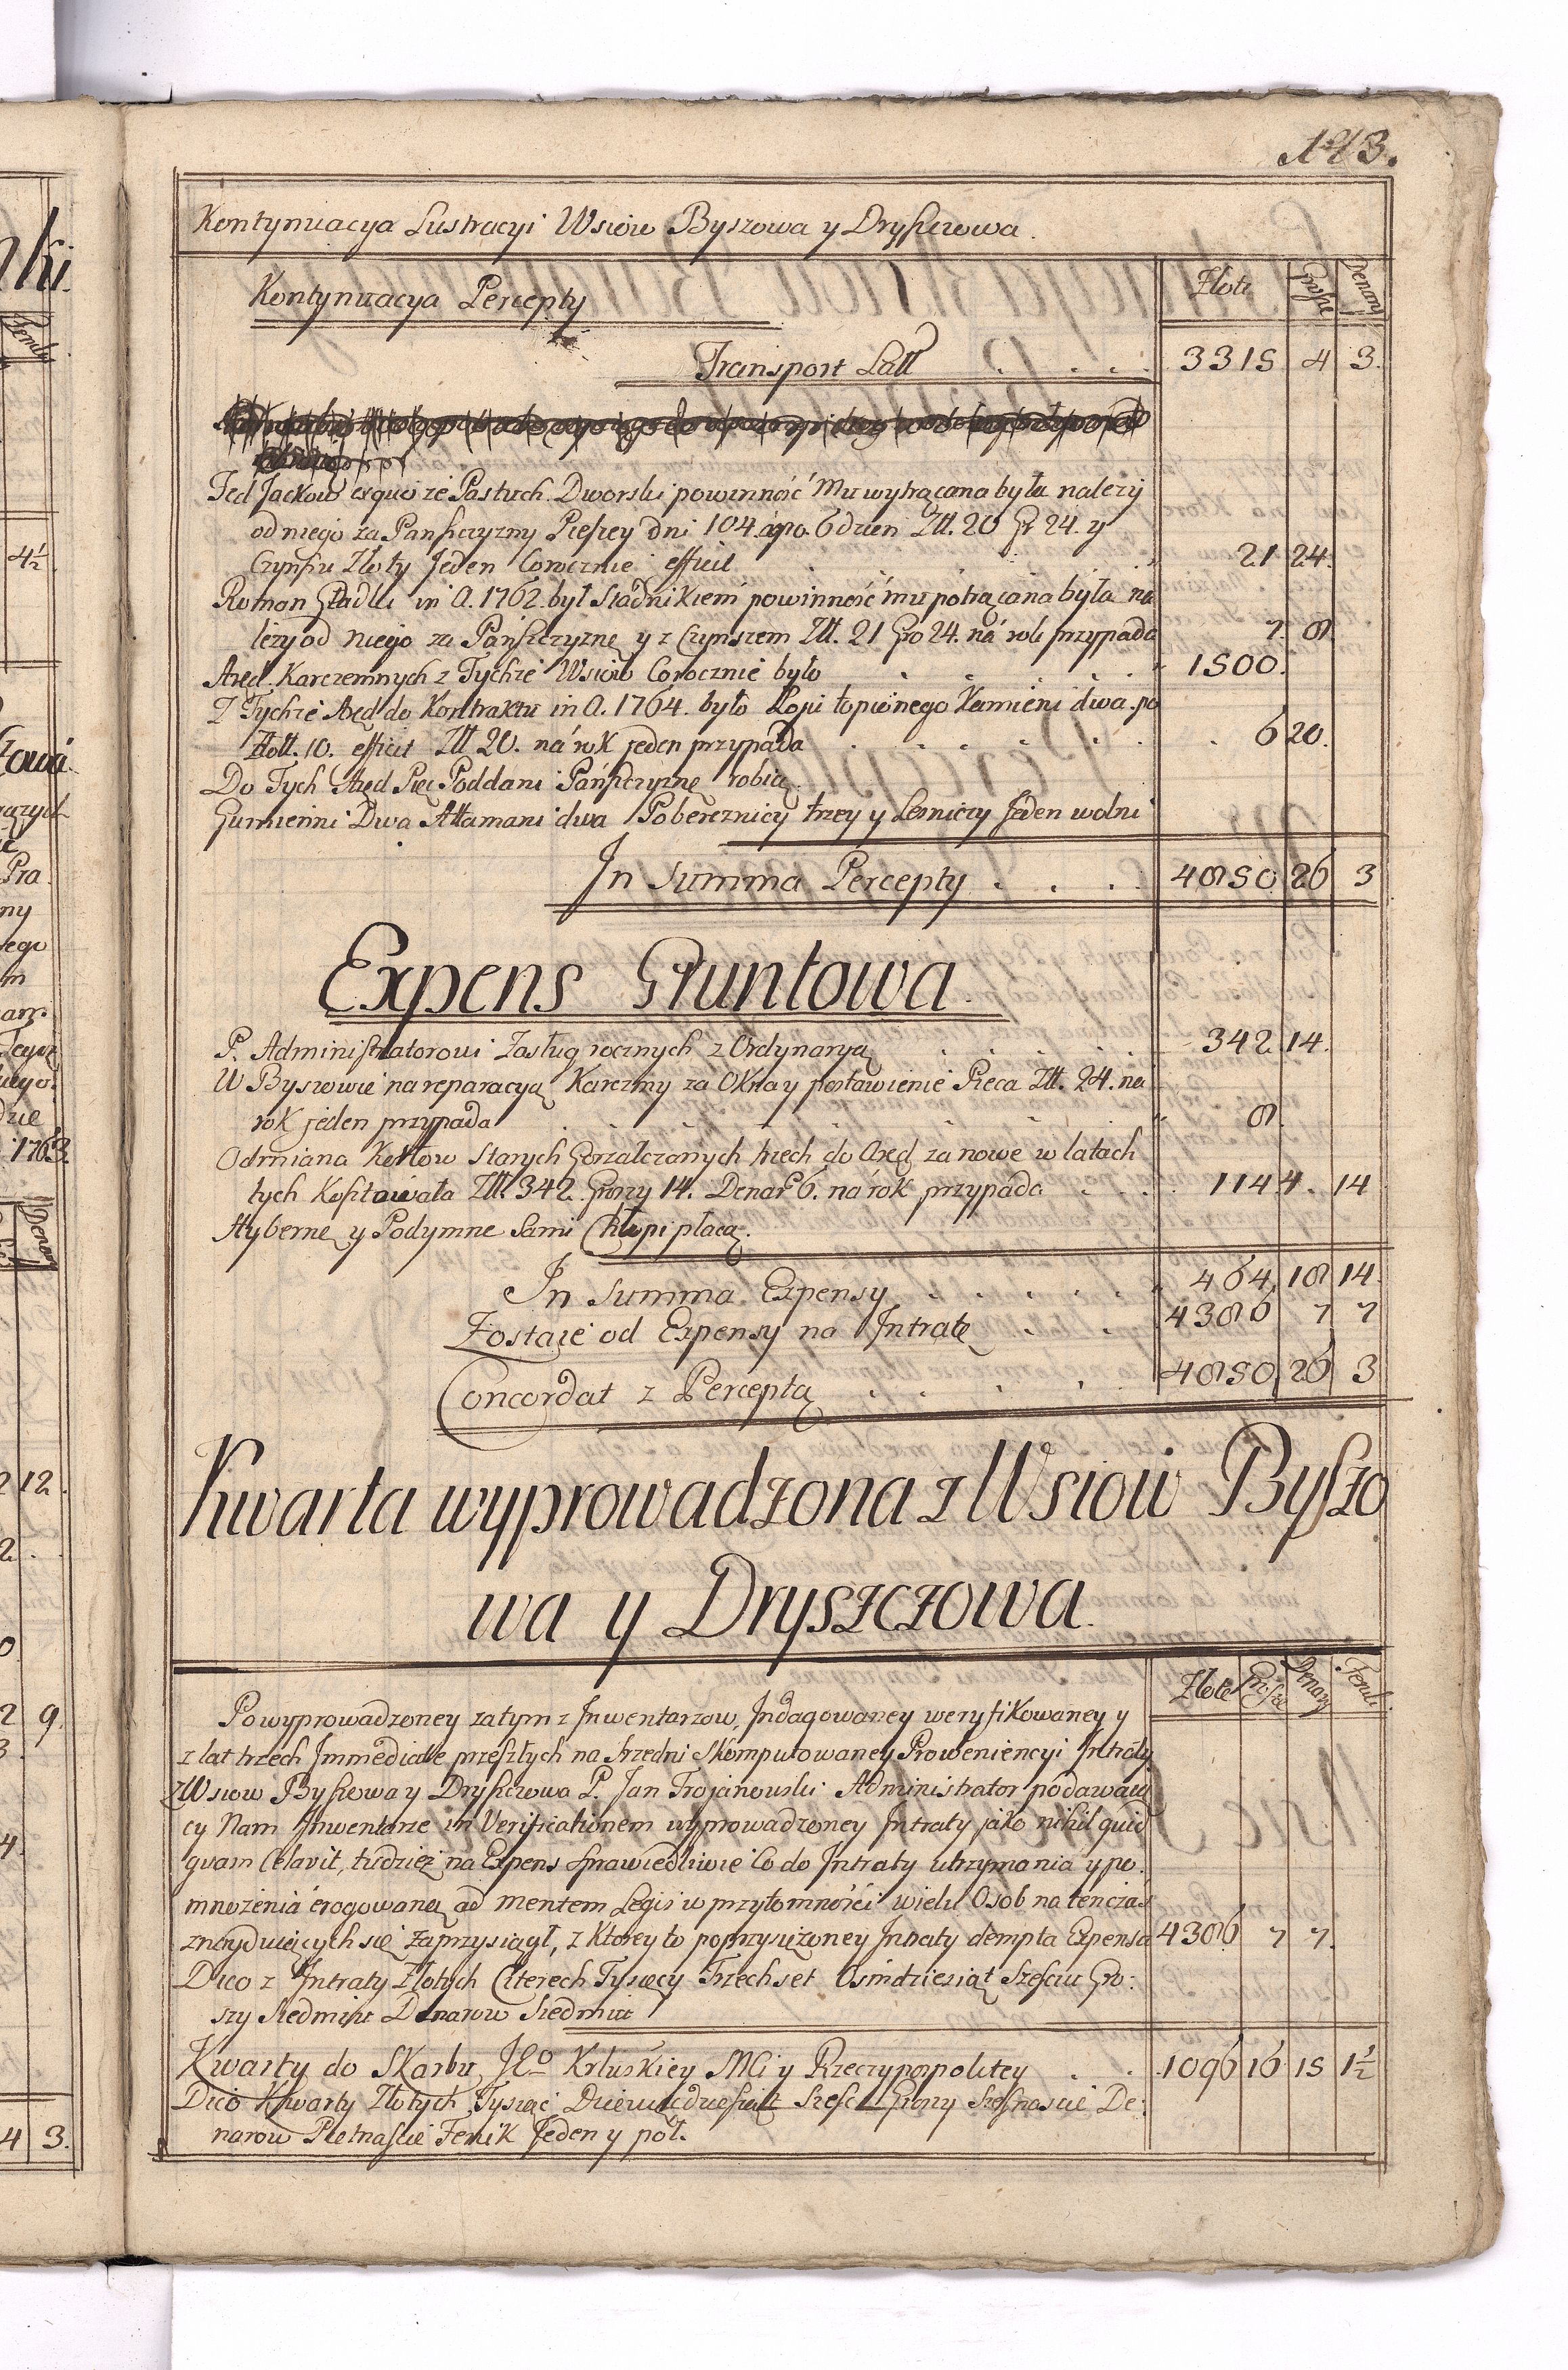 143.
Kontynuacya Lustracyi Wsiow Byszowa y Dryszczowa.
Kontynuacya Percepty Złote Grosze Denary
Transport Latt . . . . 3315 4 3.
Fed Jackow exquo że Pastuch Dworski powinność Mu wytrącana była należy
od niego za Panszczyzny Pieszey dni 104. á po. 6 dzien Złł. 20 Gr 24. y
Czynszu Złoty Jeden Corocznie efficit 21 24.
Roman Gładki in A. 1762. był Siadnikiem powinność mu potrącana była na
leży od niego za Pańszczyznę y z Czynszem Złł. 21 Gro 24. ná rok przypada 7. 8.
Aręd. Karczemnych z Tychże Wsiow Corocznie było 1500.
Z Tychże Aręd do Kontraktu in A. 1764. było Łoju topionego Kamieni dwa. po
Złott. 10. efficit Złł 20. ná rok jeden przypada . . . . 6 20.
Do Tych Aręd Pięć Poddani Pańszczyznę robią.
Gumienni Dwa Attamani dwa Pobereznicy trzey y Lesniczy Jeden wolni
In Summa Percepty . . . . 4850 26 3
Expens Gruntowa.
P. Administratorowi Zasług rocznych z Ordynaryą . . . . 342. 14.
W Byszowie na reparacyą Karczmy za Okna y postawienie Pieca Złł. 24. na
rok jeden przypada . . . . 8.
Odmiana Kotłow Starych Gorzalczanych trzech do Aręd za nowe w latach
tych Kosztowała Złł. 342. Groszy 14. Denar 6. ná rok przypada . . . . 114 4. 14
Hybernę y Podymne Sami Chłopi płacą.
In Summa Expensy . . . . 464. 18 14.
Zostaie od Expensy na Intratę . . . 4386 7 7
Concordat z Perceptą . . . . 4850. 26 3
Kwarta wyprowadzona z Wsiow Byszo
wa y Dryszczowa.
Złote Grosze Denary Feniki
Po wyprowadzoney zatym z Inwentarzow, Indagowaney weryfikowaney y
z lat trzech Immediate przeszłych na Srzedni Skomputowaney Proweniencyi Intraty
z Wsiow Byszowa y Dryszczowa P. Jan Trojanowski Administrator podawaią
cy Nam Inwentarze in Verificationem wyprowadzoney Intraty jako nihil quid
quam Celavit, tudzież na Expens Sprawiedliwie Co do Intraty utrzymania y po
mnożenia erogowaną ad mentem Legis w przytomności wielu Osob na tenczas
znayduiących się zaprzysiągł, z Ktorey to poprzysiężoney Intraty dempta Expensa 4386 7 7.
Dico z Intraty Złotych Czterech Tysięcy Trzechset Osmdziesiąt Szesciu Gro:
szy Siedmiu Denarow Siedmiu
Kwarty do Skarbu JKo Krlewskiey Mći y Rzeczypospolitey . . . 1096 16 15 1½
Dico Kwarty Złotych Tysiąc Dziewięćdziesiąt Szesć Groszy Szesnascie De:
narow Pietnascie Fenik Jeden y poł.